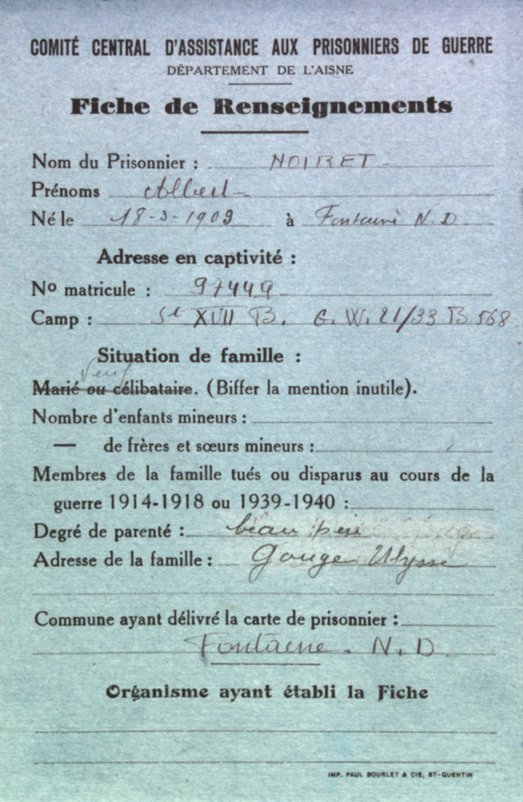 COMITÉ CENTRAL D'ASSISTANCE AUX PRISONNIERS DE GUERRE
DÉPARTEMENT DE L'AISNE
Fiche de Renseignements
Nom du Prisonnier : NOIRET
Prénoms Albert
Né le 18-3-1909 à Fontaine N.D
Adresse en captivité :
No matricule : 97449
Camp : St XVII B. G.W. 21/33 B 568
Situation de famille :
Veuf
Marié ou célibataire. (Biffer la mention inutile).
Nombre d'enfants mineurs :
— de frères et sœurs mineurs :
Membres de la famille tués ou disparus au cours de la
guerre 1914-1918 ou 1939-1940 :
Degré de parenté : beau père
Adresse de la famille : Gouge Ulysse
Commune ayant délivré la carte de prisonnier :
Fontaine. N.D.
Organisme ayant établi la Fiche
IMP. PAUL BOURLET & CIE, ST-QUENTIN